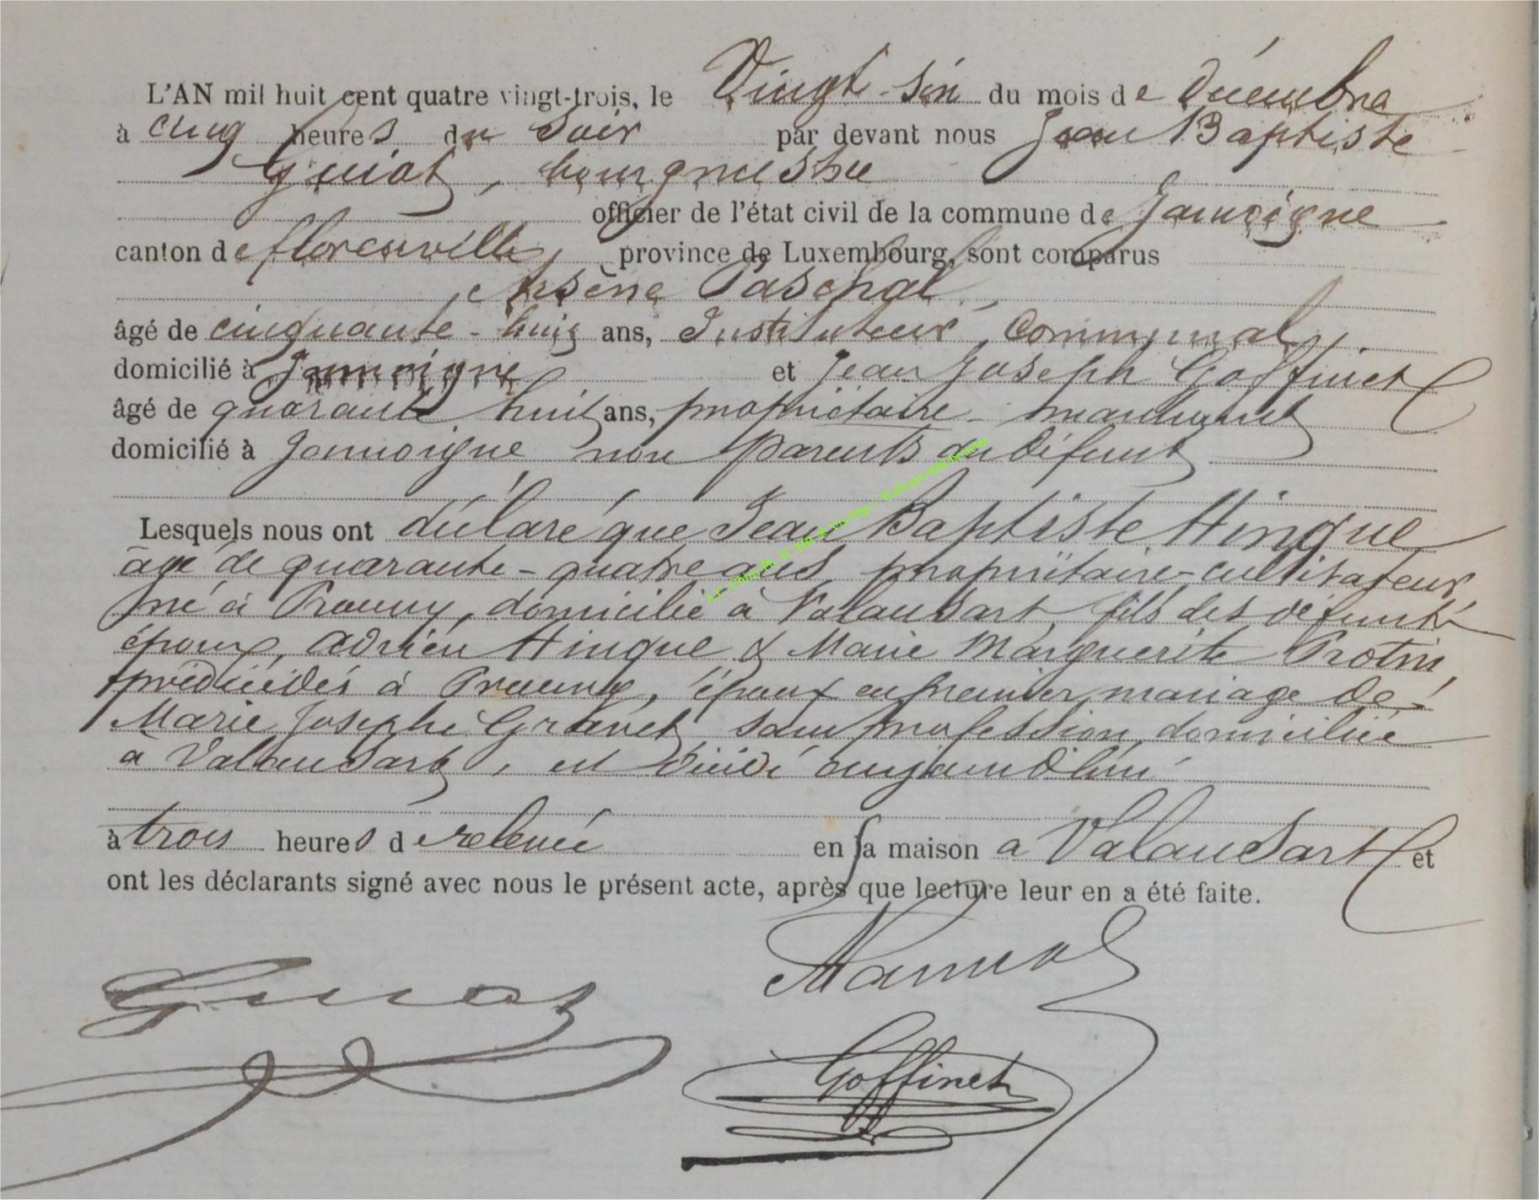 L'AN mil huit cent quatre vingt-trois, le Vingt-six du mois de Décembre
à cinq heures du soir par devant nous Jean Baptiste
Guiot, bourgmestre
officier de l'état civil de la commune de Jamoigne
canton de florenville, province de Luxembourg, sont comparus
Arsène Paschal,
âgé de cinquante-huit ans, Instituteur communal,
domicilié à Jamoigne et Jean Joseph Goffinet
âgé de quarante huit ans, propriétaire - marchand
domicilié à Jamoigne non parents du défunt
Lesquels nous ont déclaré que Jean Baptiste Hinque
âgé de quarante-quatre ans, propriétaire-cultivateur
né à Prouvy, domicilié à Valansart, fils des défunts
époux, Adrien Hinque & Marie Marguerite Protin,
prédécédés à Prouvy, époux en premier mariage de
Marie Josephe Gravet sans profession, domiciliée
à Valansart, est décédé aujourd'hui
à trois heures de relevée en sa maison à Valansart et
ont les déclarants signé avec nous le présent acte, après que lecture leur en a été faite.
Guiot
Goffinet